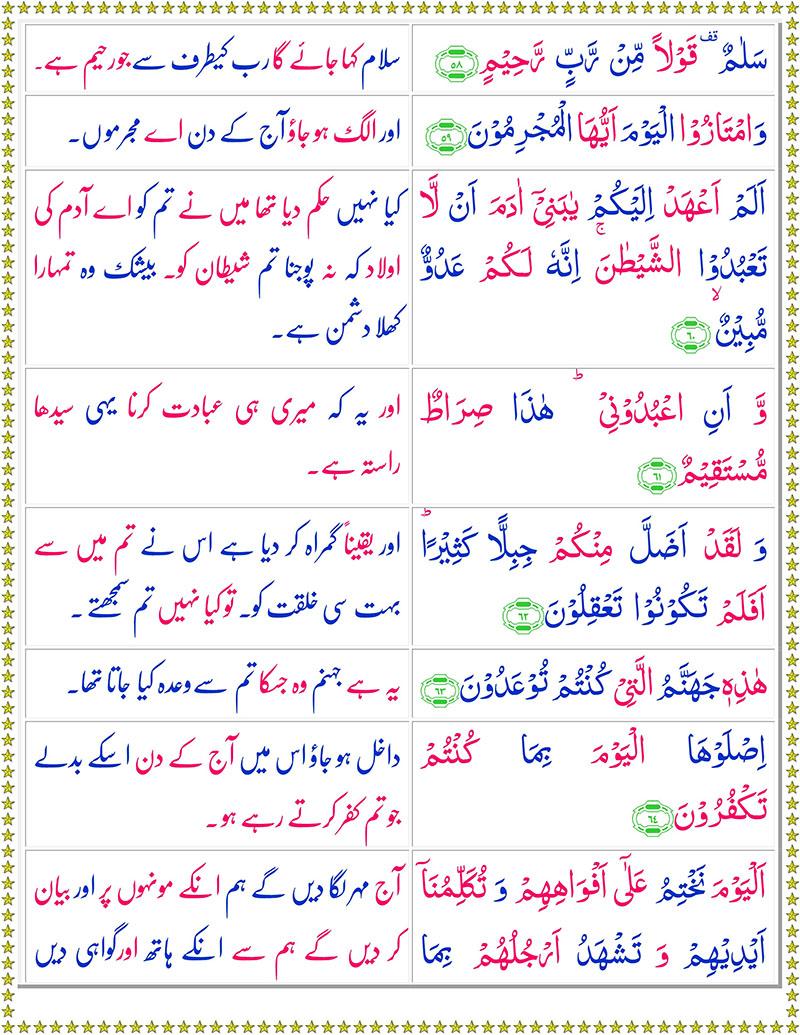 سَلٰمٌ ۟ قَوْلًا مِّنْ رَّبٍّ رَّحِيْمٍ ﴿٥٨﴾
سلام کہا جائے گا رب کیطرف سے جو رحیم ہے۔
وَامْتَازُوا الْيَوْمَ اَيُّهَا الْمُجْرِمُوْنَ ﴿٥٩﴾
اور الگ ہو جاؤ آج کے دن اے مجرموں۔
اَلَمْ اَعْهَدْ اِلَيْكُمْ يٰبَنِيْٓ اٰدَمَ اَنْ لَّا
تَعْبُدُوْا الشَّيْطٰنَ ۚ اِنَّهٗ لَكُمْ عَدُوٌّ
مُّبِيْنٌ ۙ ﴿٦٠﴾
کیا نہیں حکم دیا تھا میں نے تم کو اے آدم کی
اولاد کہ نہ پوجنا تم شیطان کو۔ بیشک وہ تمہارا
کھلا دشمن ہے۔
وَّ اَنِ اعْبُدُوْنِيْ ؕ هٰذَا صِرَاطٌ
مُّسْتَقِيْمٌ ﴿٦١﴾
اور یہ کہ میری ہی عبادت کرنا یہی سیدھا
راستہ ہے۔
وَ لَقَدْ اَضَلَّ مِنْكُمْ جِبِلًّا كَثِيْرًا ؕ
اَفَلَمْ تَكُوْنُوْا تَعْقِلُوْنَ ﴿٦٢﴾
اور یقیناً گمراہ کر دیا ہے اس نے تم میں سے
بہت سی خلقت کو۔ تو کیا نہیں تم سمجھتے ۔
هٰذِهٖ جَهَنَّمُ الَّتِيْ كُنْتُمْ تُوْعَدُوْنَ ﴿٦٣﴾
یہ ہے جہنم وہ جسکا تم سے وعدہ کیا جاتا تھا۔
اِصْلَوْهَا الْيَوْمَ بِمَا كُنْتُمْ
تَكْفُرُوْنَ ﴿٦٤﴾
داخل ہو جاؤ اس میں آج کے دن اسکے بدلے
جو تم کفر کرتے رہے ہو۔
اَلْيَوْمَ نَخْتِمُ عَلٰٓى اَفْوَاهِهِمْ وَ تُكَلِّمُنَاۤ
اَيْدِيْهِمْ وَ تَشْهَدُ اَرْجُلُهُمْ بِمَا
آج مہر لگا دیں گے ہم انکے مونہوں پر اور بیان
کر دیں گے ہم سے انکے ہاتھ اور گواہی دیں